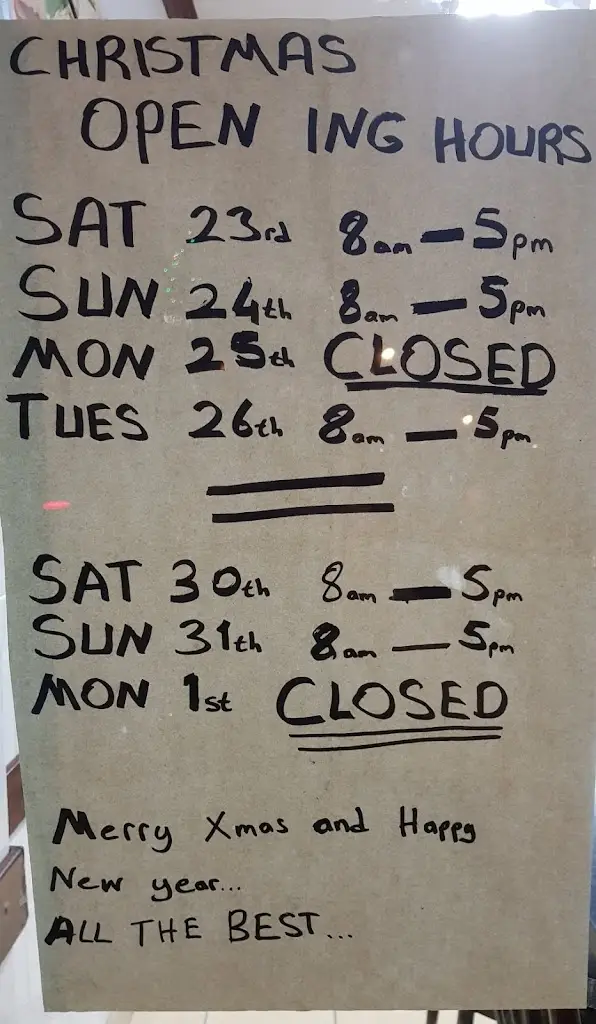 CHRISTMAS
OPEN ING HOURS
SAT 23rd 8am - 5pm
SUN 24th 8am - 5pm
MON 25th CLOSED
TUES 26th 8am - 5pm
SAT 30th 8am - 5pm
SUN 31th 8am - 5pm
MON 1st CLOSED
Merry Xmas and Happy
New year...
ALL THE BEST...